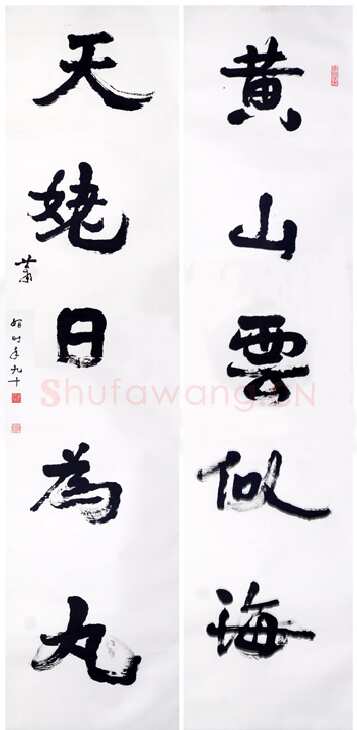 黄山雲似海
天姥日為丸
萧娴时年九十
Shufawang.CN